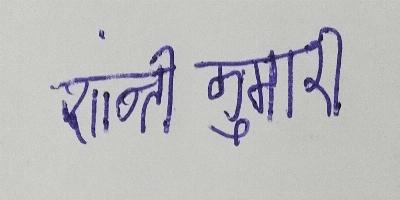 शांन्ती कुमारी